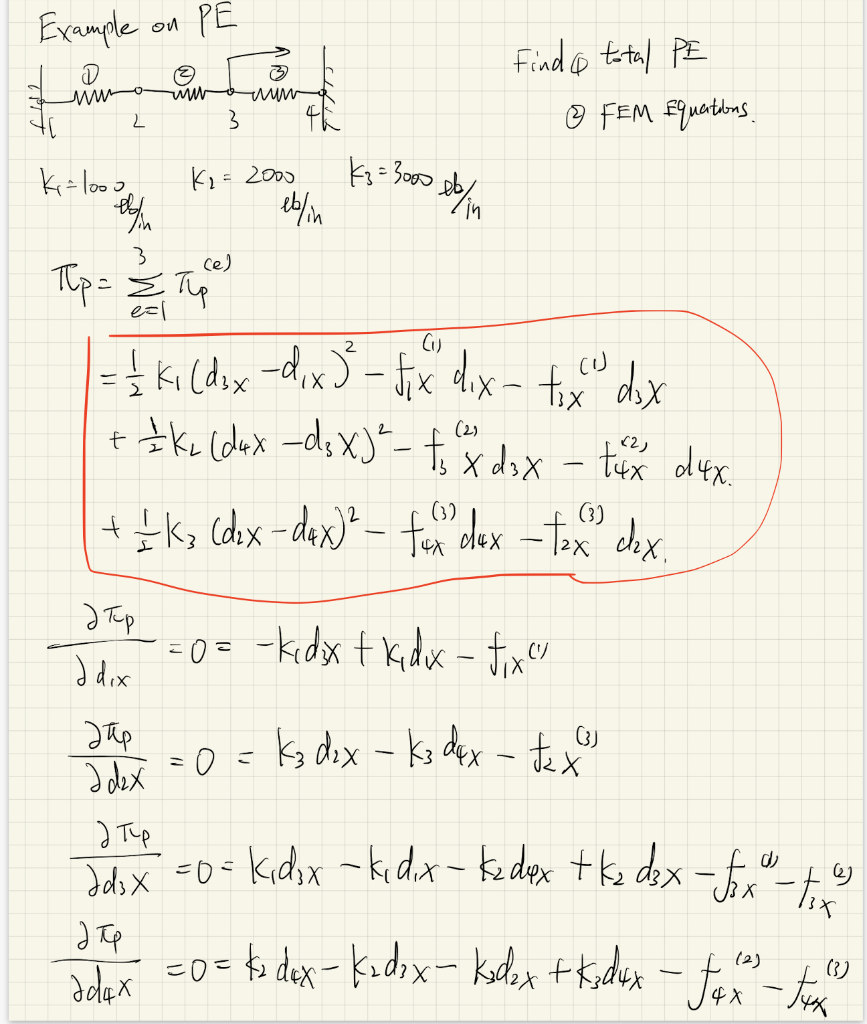 Example on PE
Find ① total PE
② FEM Equations.
① ② ③
1 2 3 4
K₁=1000 lb/in K₂ = 2000 lb/in K₃=3000 lb/in
πp = Σ_{e=1}^{3} πp^(e)
= 1/2 K₁(d₃x - d₁x)² - f₁x^(1) d₁x - f₃x^(1) d₃x
+ 1/2 K₂(d₄x - d₃x)² - f₃x^(2) d₃x - f₄x^(2) d₄x.
+ 1/2 K₃(d₂x - d₄x)² - f₄x^(3) d₄x - f₂x^(3) d₂x.
∂πp/∂d₁x = 0 = -K₁d₃x + K₁d₁x - f₁x^(1)
∂πp/∂d₂x = 0 = K₃d₂x - K₃d₄x - f₂x^(3)
∂πp/∂d₃x = 0 = K₁d₃x - K₁d₁x - K₂d₄x + K₂d₃x - f₃x^(1) - f₃x^(2)
∂πp/∂d₄x = 0 = K₂d₄x - K₂d₃x - K₃d₂x + K₃d₄x - f₄x^(2) - f₄x^(3)